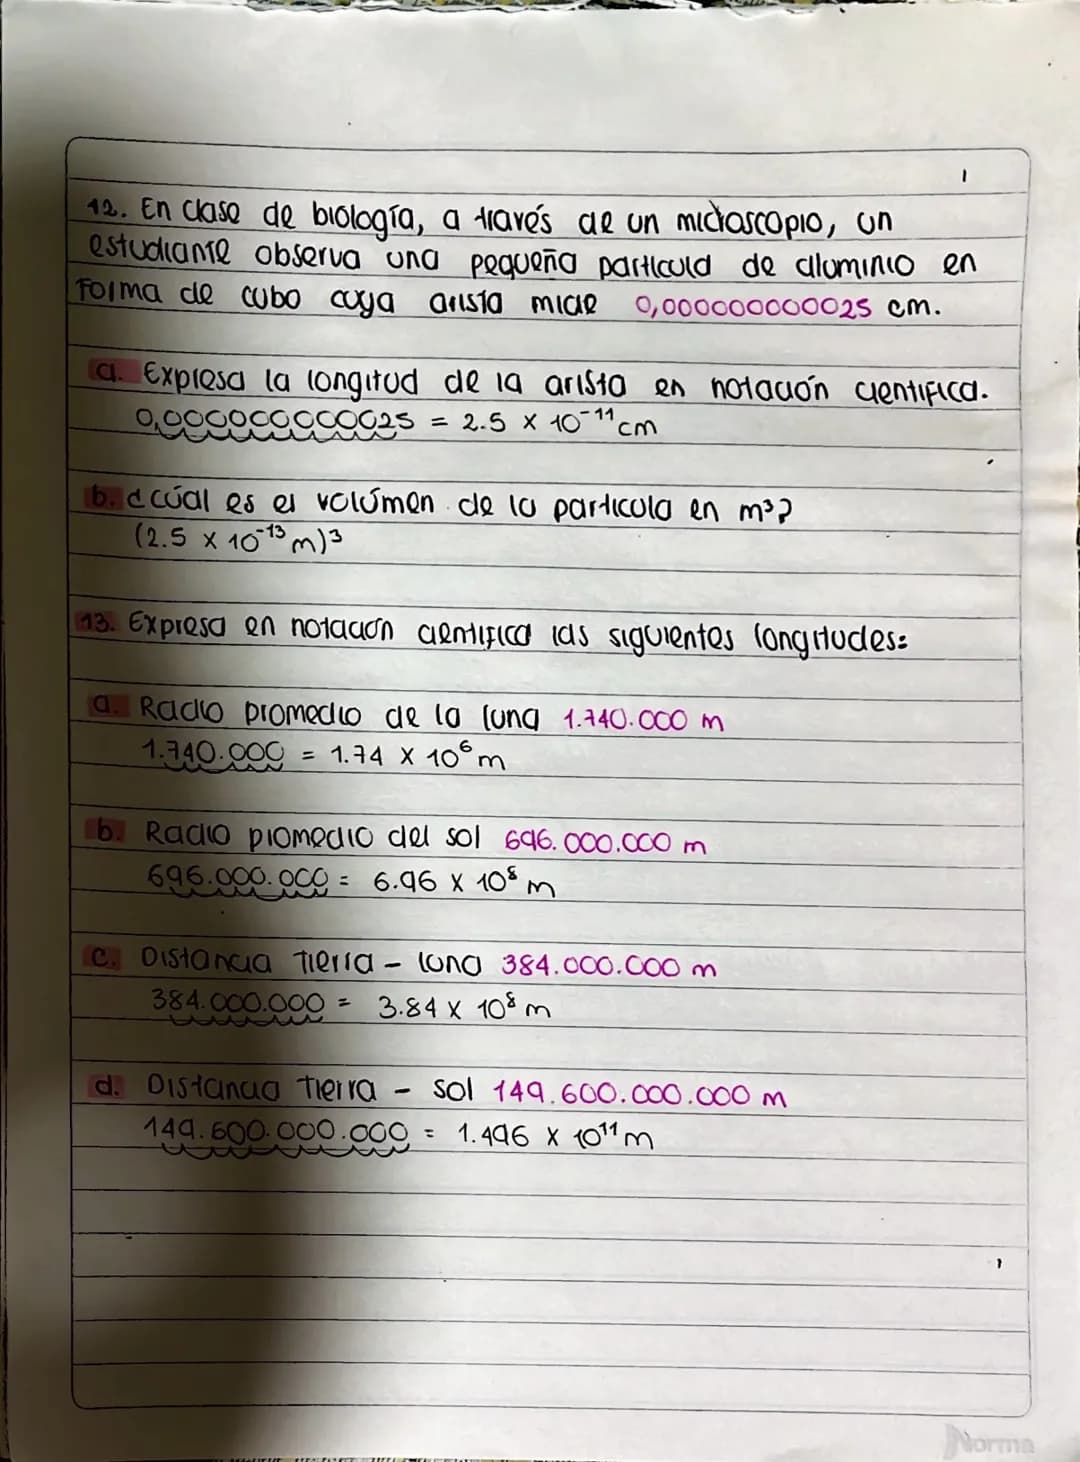 12. En clase de biología, a través de un microscopio, un
estudiante observa una pequeña particula de aluminio en
Forma de cubo cuya arista mide 0,000000000025 cm.
a. Expresa la longitud de la arista en notación cientifica.
0,000000000025 = 2.5 x 10⁻¹¹ cm
b. ¿cúal es el volúmen de la particula en m³?
(2.5 x 10⁻¹³ m)³
13. Expresa en notación cientifica las siguientes longitudes:
a. Radio promedio de la luna 1.740.000 m
1.740.000 = 1.74 x 10⁶ m
b. Radio promedio del sol 696.000.000 m
696.000.000 = 6.96 x 10⁸ m
c. Distancia Tierra - luna 384.000.000 m
384.000.000 = 3.84 x 10⁸ m
d. Distancia Tierra - sol 149.600.000.000 m
149.600.000.000 = 1.496 x 10¹¹ m
Norma